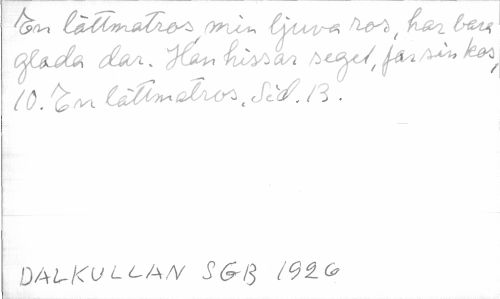 En lättmatros, min ljuva ros, har bara
glada dar. Han hissar seget, far sin kos,
10. En lättmatros. Sid. 13.
DALKULLAN SGB 1926